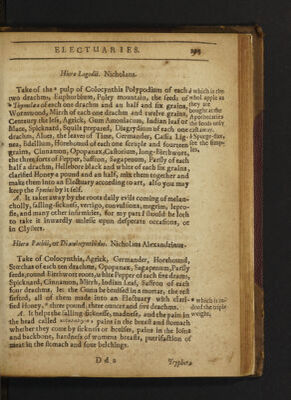 ELECTUARIES.
195
Hiera Logodii. Nicholaus.
Take of the * pulp of Colocynthis Polypodium of each
two drachms, Euphorbium, Poley mountain, the seeds of
* Thymelæa of each one drachm and an half and six grains,
Wormwood, Mirrh of each one drachm and twelve grains,
Centaury the less, Agrick, Gum Amoniacum, Indian leaf or
Mace, Spicknard, Squils prepared, Diagrydium of each one
drachm, Aloes, the leaves of Time, Germander, Cassia Lig-
nea, Bdellium, Horehound of each one scruple and fourteen
grains, Cinnamon, Opopanax, Castorium, long-Birthwort,
the three sorts of Pepper, Saffron, Sagapenum, Parsly of each
half a drachm, Hellebore black and white of each six grains,
clarified Honey a pound and an half, mix them together and
make them into an Electuary according to art, also you may
keep the Species by it self.
which is the
whol apple as
they are
bought at the
Apothecaries
the seeds only
cast away.
Spurge-flax,
for the simp-
les.
A. It takes away by the roots daily evils coming of melan-
cholly, falling-sickness, vertigo, convulsions, megrim, lepro-
sie, and many other infirmities, for my part I should be loth
to take it inwardly unless upon desperate occasions, or
in Clysters.
Hiera Pachii, or Diacolocynthidos. Nicholaus Alexandrinus.
Take of Colocynthis, Agrick, Germander, Horehound,
Stœchas of each ten drachms, Opopanax, Sagapenum, Parsly
seeds, round Birthwort roots, white Pepper of each five drams,
Spicknard, Cinnamon, Mirrh, Indian Leaf, Saffron of each
four drachms, let the Gums be bruised in a mortar, the rest
sifted, all of them made into an Electuary with clari-
fied Honey, * three pound, three ounces and five drachms.
* which is in-
deed the triple
weight.
A. It helps the falling-sickness, madness, and the pain in
the head called pains in the breast and stomach
whether they come by sickness or bruises, pains in the loins
and backbone, hardness of womens breasts, putrifaction of
meat in the stomach and sour belchings.
D d 2
Tryphera